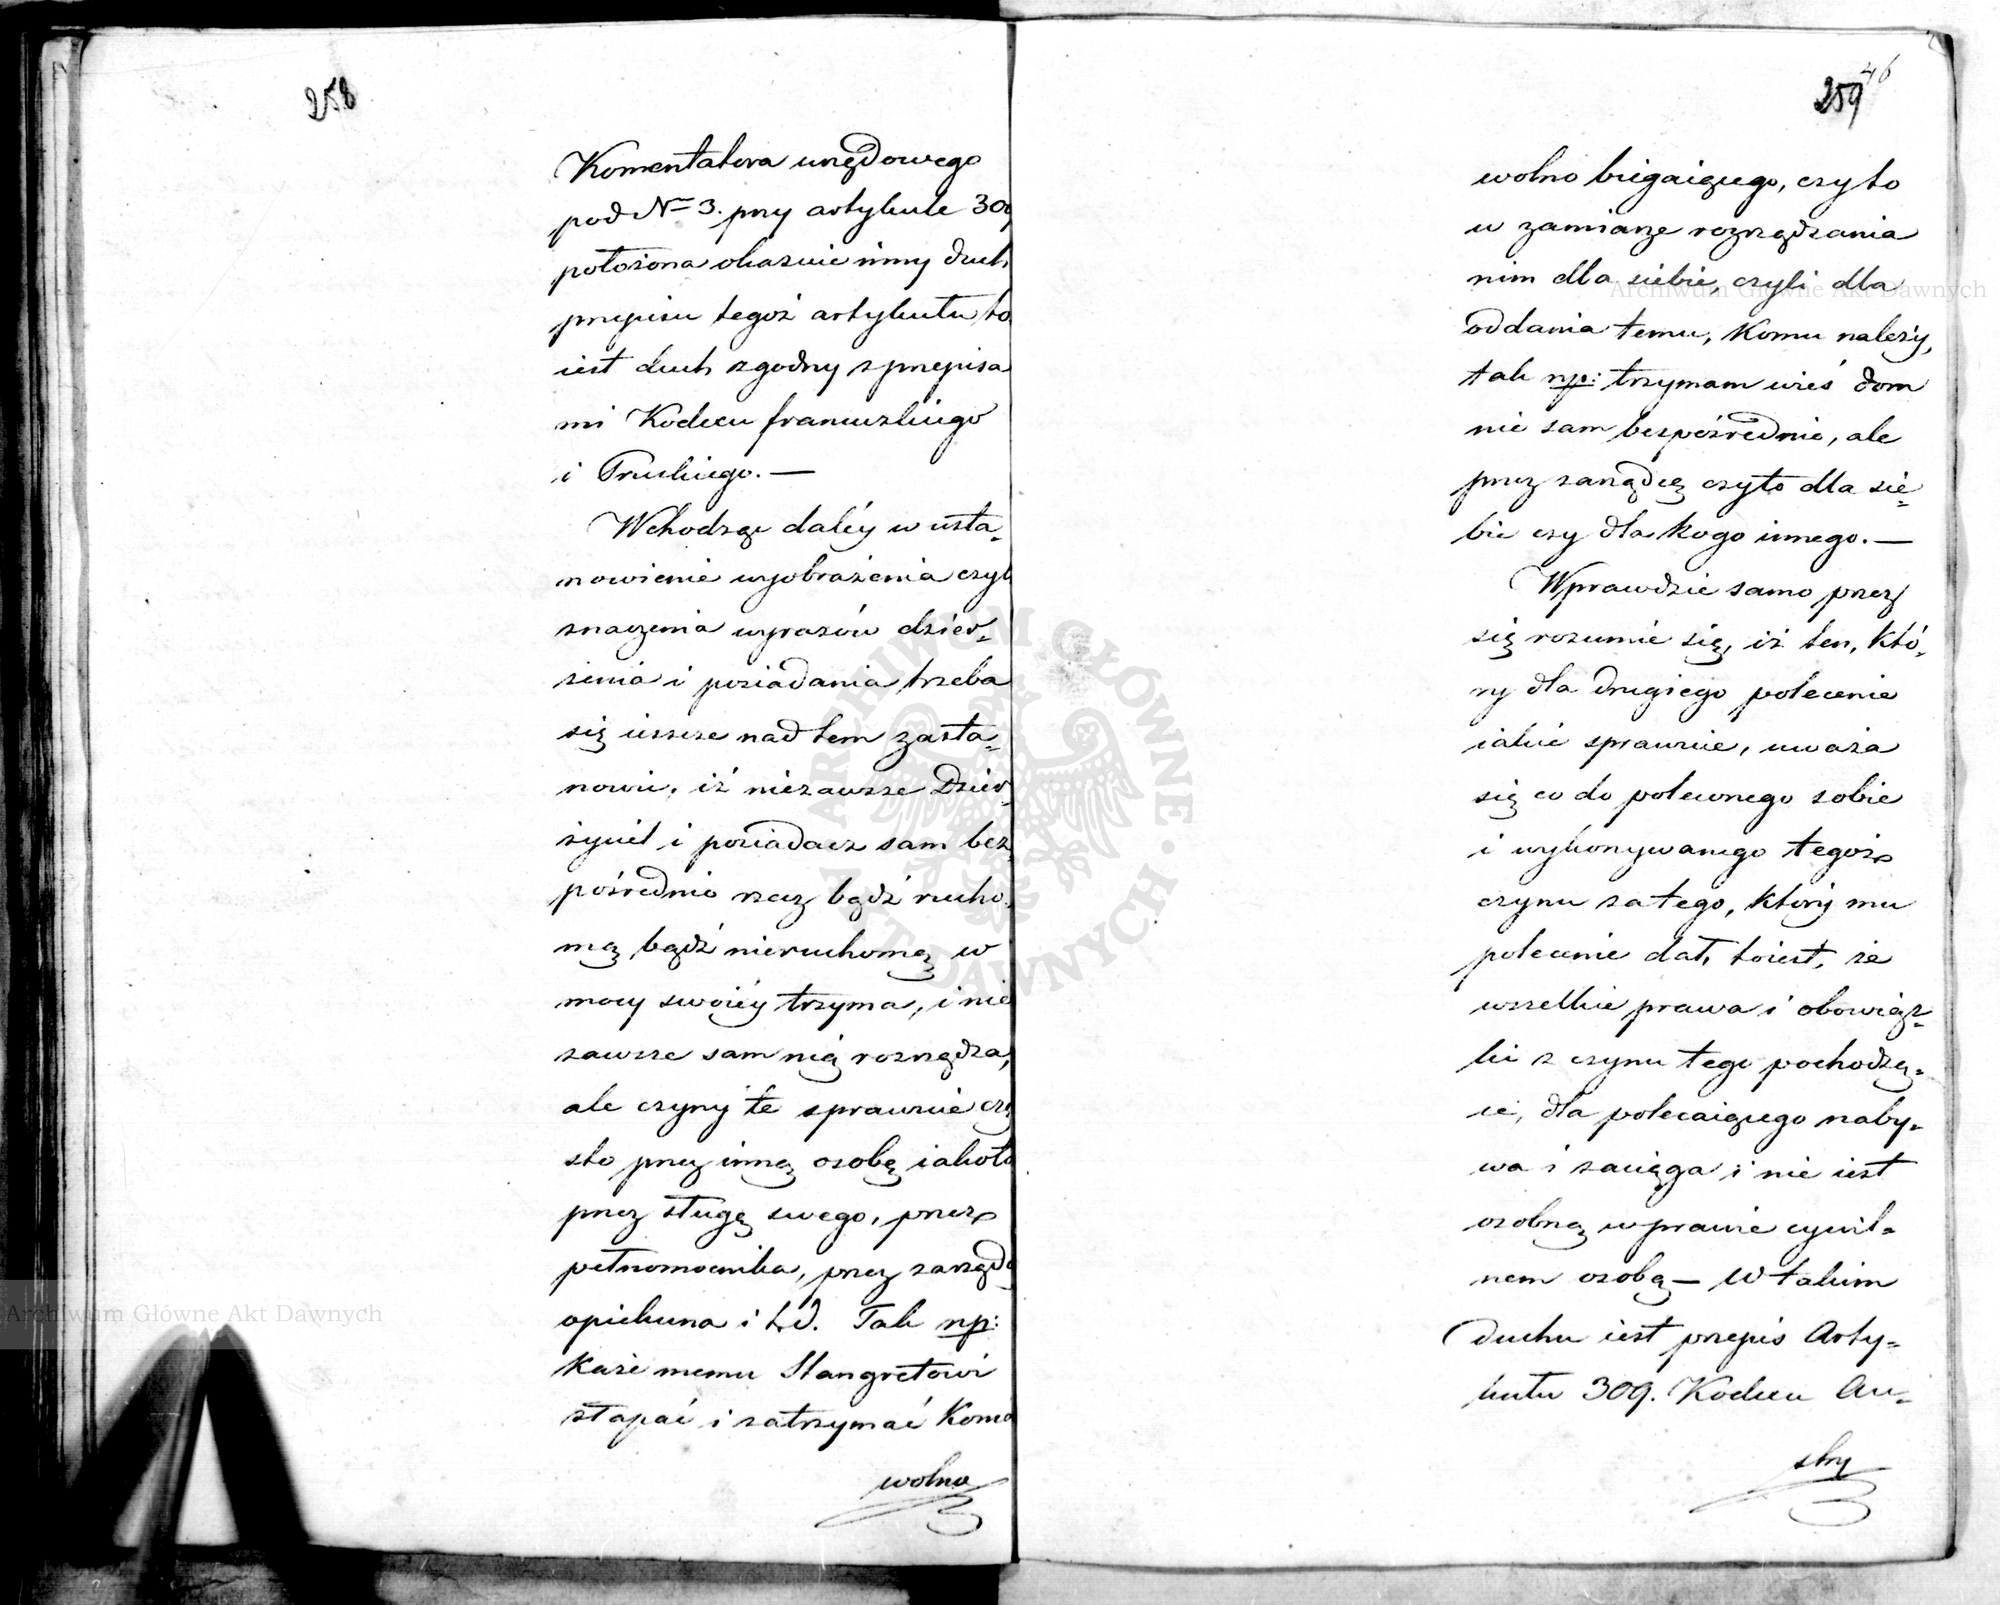 258
Komentatora urzędowego
pod No 3. przy artykule 309
położona okazuie inny duch
przepisu tegoż artykułu to
iest duch zgodny z przepisa
mi Kodexu francuzkiego
i Pruskiego. —
Wchodząc daléy w usta-
nowienie wyobrażenia czyli
znaczenia wyrazów dzier-
żenia i posiadania trzeba
się ieszcze nad tem zasta-
nowić, iż niezawsze Dzier-
życiel i posiadacz sam bez-
pośrednio rzecz bądź rucho-
mą bądź nieruchomą w
mocy swoiéy trzyma, i nie
zawsze sam nią rozrządza,
ale czyny te sprawuie czę
sto przez inną osobę iakoto
przez sługę swego, przez
pełnomocnika, przez zarządcę
opiekuna i t.d. Tak np:
każe memu Stangretowi
złapać i zatrzymać Konia
wolno
46
259
wolno biegaiącego, czyto
w zamiarze rozrządzania
nim dla siebie, czyli dla
oddania temu, Komu należy,
tak np: trzymam wieś dom
nie sam bezpośrednie, ale
przez zarządcę czyto dla sie-
bie czy dla kogo innego. —
Wprawdzie samo przez
się rozumie się, iż ten, któ-
ry dla drugiego polecenie
iakie sprawuie, uważa
się co do poleconego sobie
i wykonywanego tegoż
czynu za tego, który mu
polecenie dał, toiest, że
wszelkie prawa i obowiąz-
ki z czynu tego pochodzą-
ce, dla polecaiącego naby-
wa i zaciąga i nie iest
osobną w prawie cywil-
nem osobą — W takim
duchu iest przepis Arty-
kułu 309. Kodexu Au-
stry
Archiwum Główne Akt Dawnych
Archiwum Główne Akt Dawnych
ARCHIWUM GŁÓWNE AKT DAWNYCH